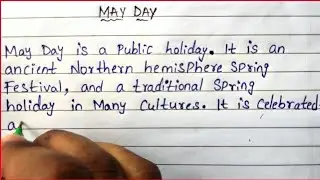 MAY DAY
May Day is a Public holiday. It is an
ancient Northern hemisphere Spring
Festival, and a traditional Spring
holiday in Many Cultures. It is Celebrated
a